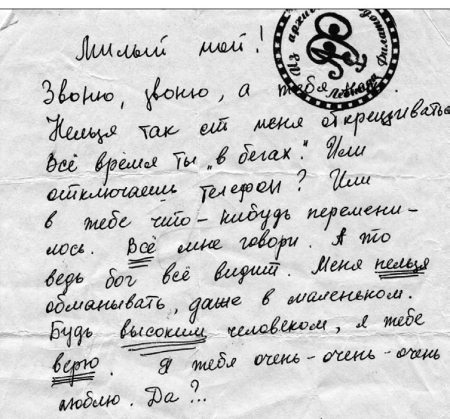 Милый мой!
Звоню, звоню, а тебя
Нельзя так от меня открещиваться
Всё время ты „в бегах". Или
отключаешь телефон? Или
в тебе что-нибудь перемени-
лось. Всё мне говори. А то
ведь бог всё видит. Меня нельзя
обманывать, даже в маленьком.
Будь высоким человеком, я тебе
верю. Я тебя очень-очень-очень
люблю. Да?..
Из архива
Леонида Филатова